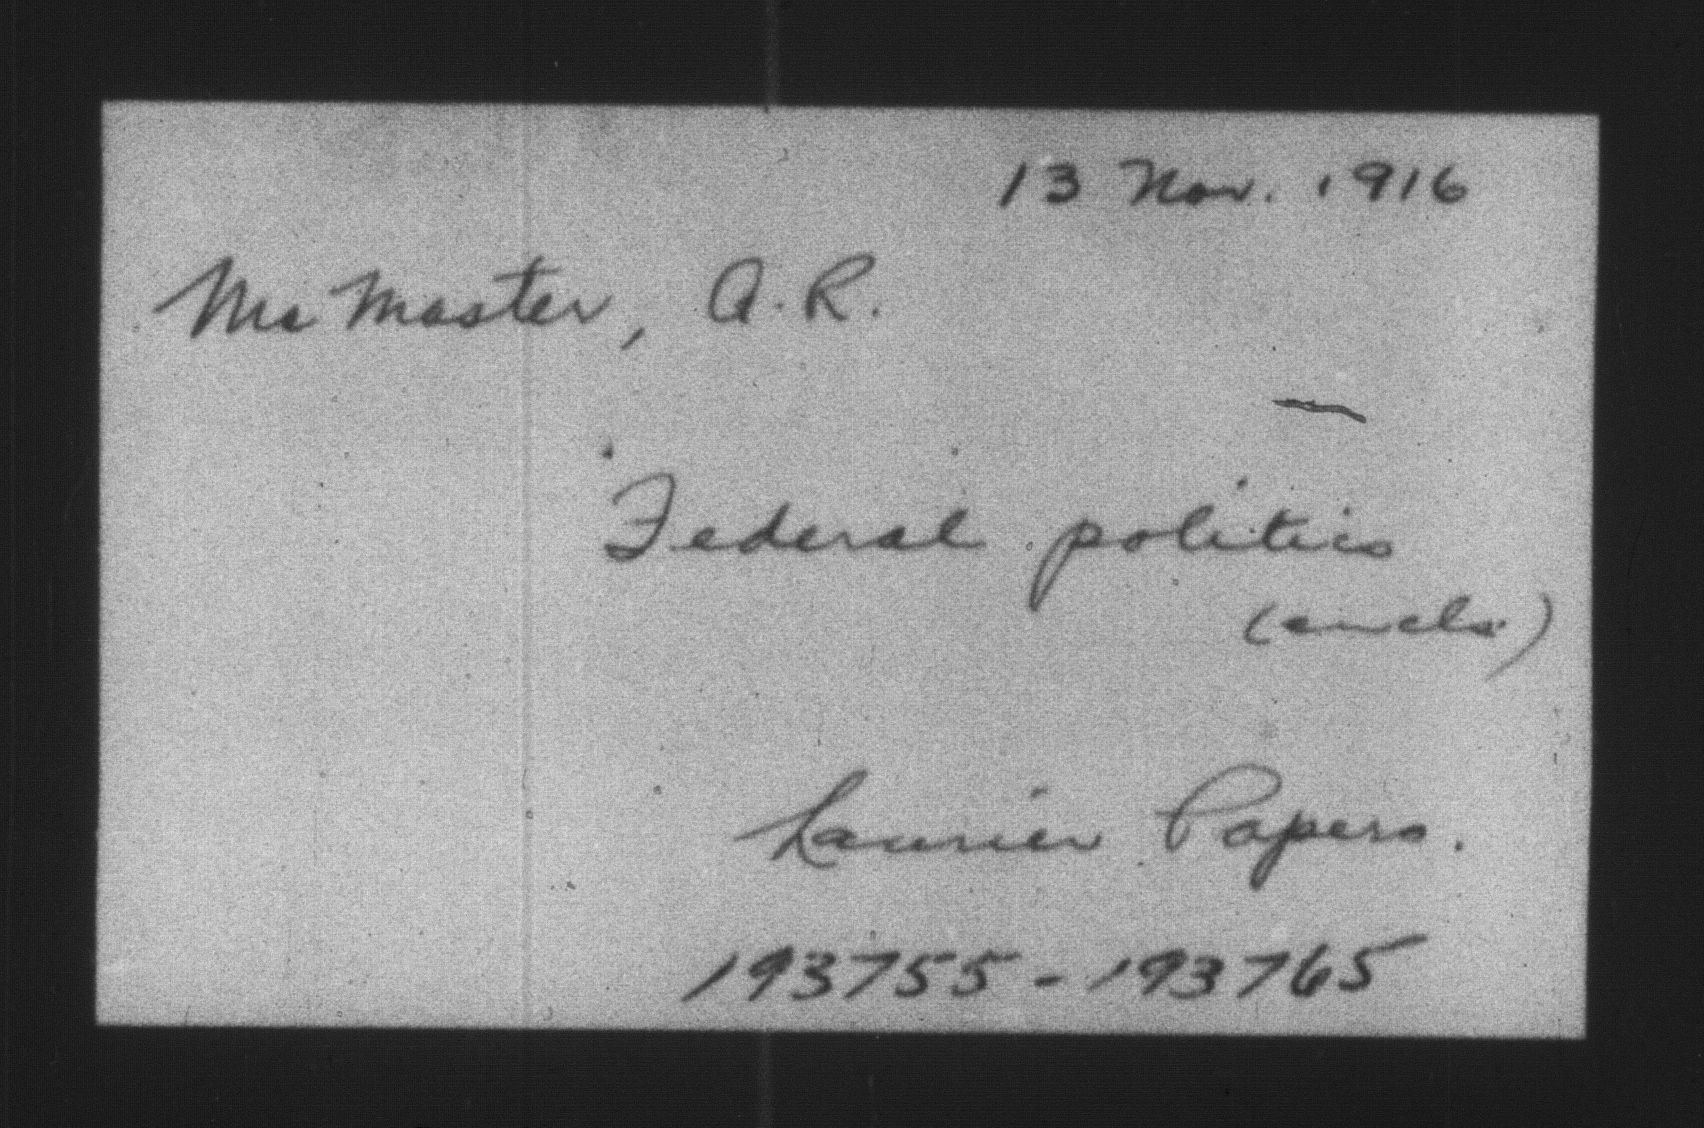 13 Nov. 1916
McMaster, A.R.
Federal politics
(encls.)
Laurier Papers.
193755-193765